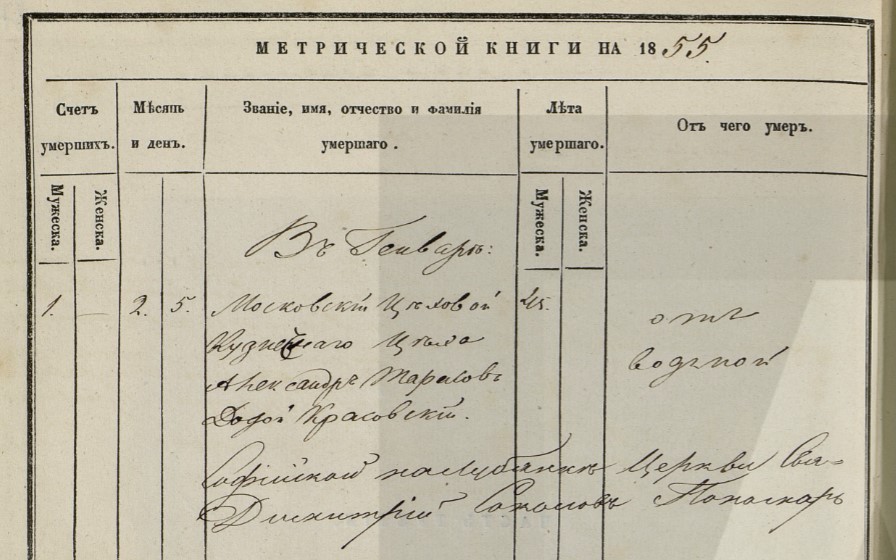 МЕТРИЧЕСКОЙ КНИГИ НА 1855.
Счетъ умершихъ.
Мѣсяцъ и день.
Званіе, имя, отчество и фамилія умершаго.
Лѣта умершаго.
Отъ чего умеръ.
Мужеска.
Женска.
Мужеска.
Женска.
Въ Генварѣ:
1. — 2. 5. Московскій Цѣховой 45. отъ
Кузнечнаго Цѣха водяной
Александръ Тарасовъ
Красовскій.
Софійской на Лубянкѣ Церкви
Димитрій Соколовъ